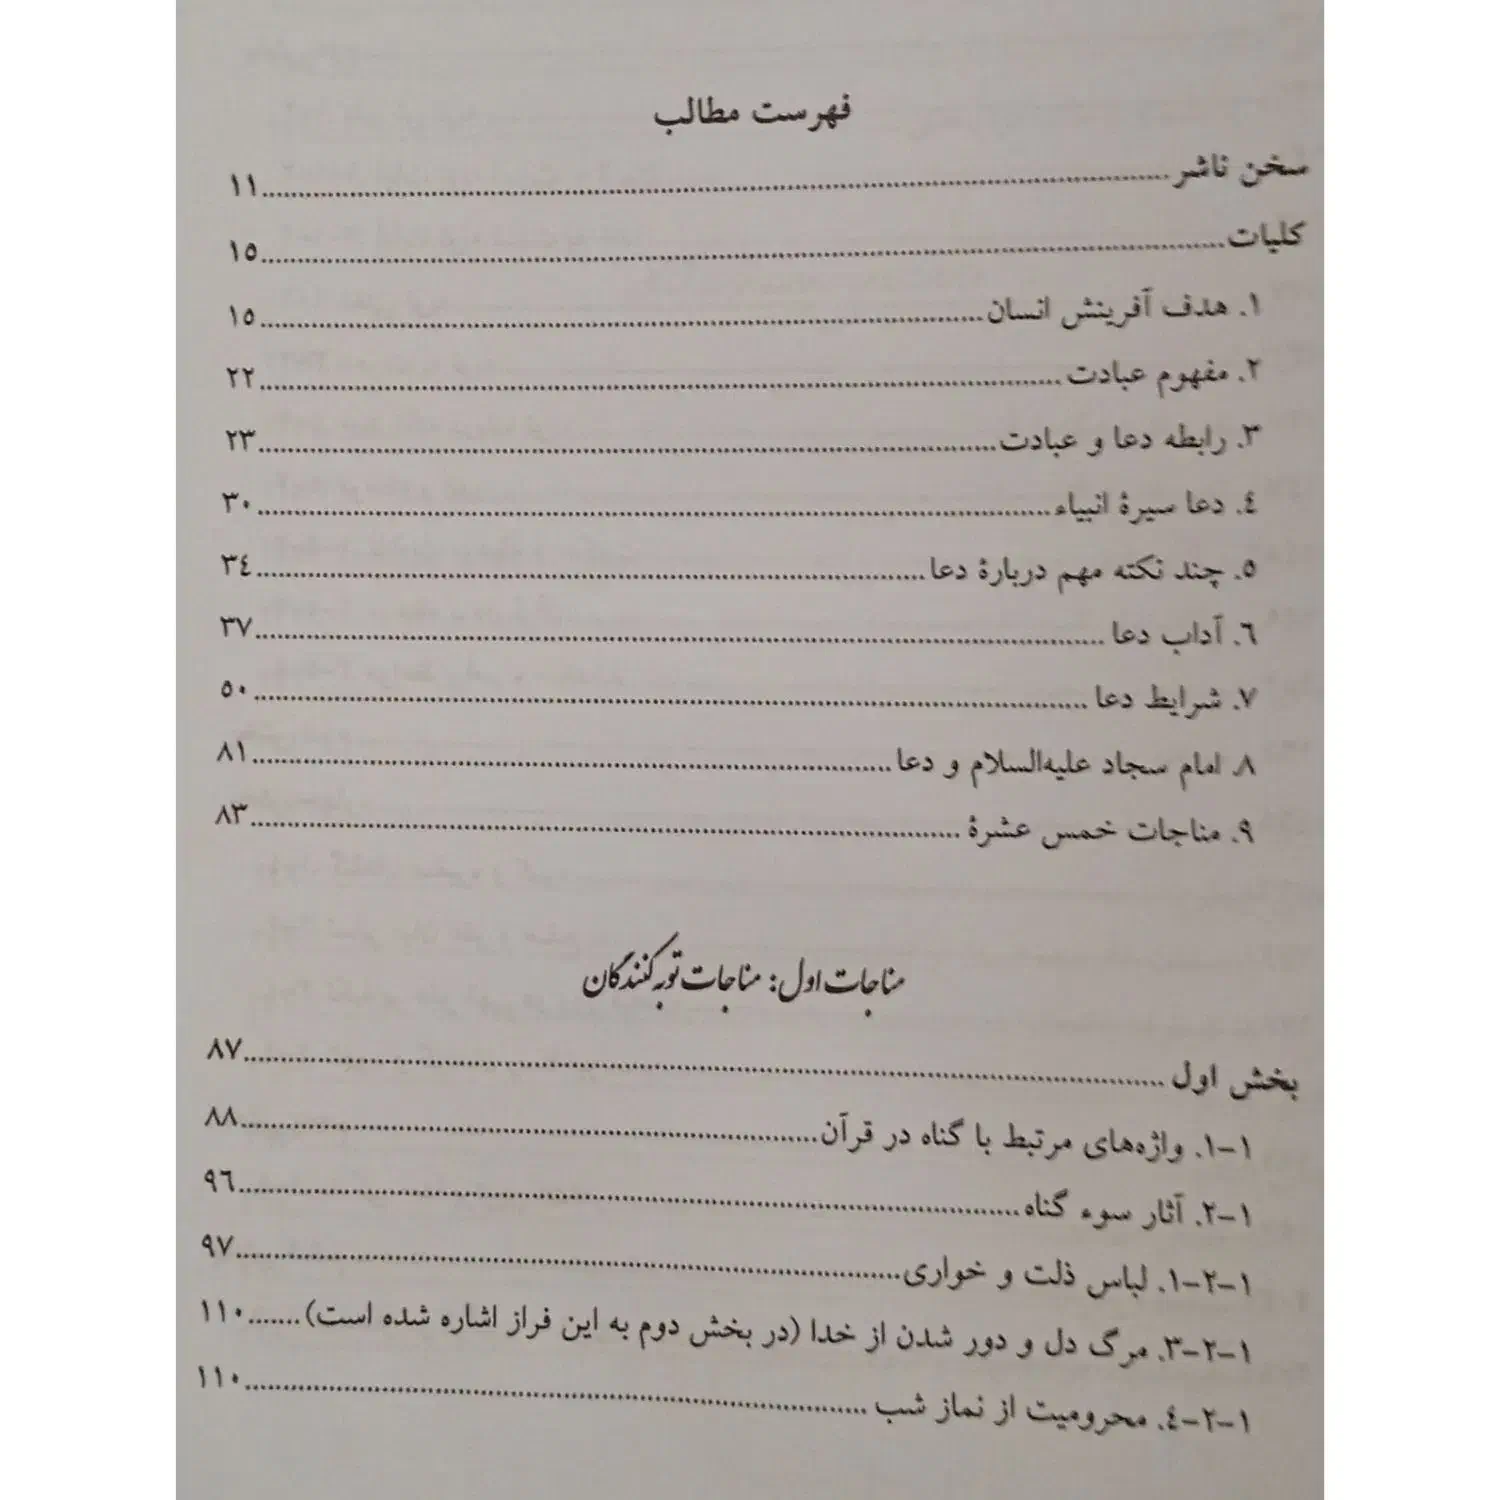 فهرست مطالب
سخن ناشر........................................ ۱۱
کلیات........................................ ۱۵
۱. هدف آفرینش انسان........................................ ۱۵
۲. مفهوم عبادت........................................ ۲۲
۳. رابطه دعا و عبادت........................................ ۲۳
٤. دعا سیرهٔ انبیاء........................................ ۳۰
۵. چند نکته مهم دربارهٔ دعا........................................ ۳٤
٦. آداب دعا........................................ ۳۷
۷. شرایط دعا........................................ ۵۰
۸. امام سجاد علیه‌السلام و دعا........................................ ۸۱
۹. مناجات خمس عشرهٔ........................................ ۸۳
مناجات اول: مناجات توبه‌کنندگان
بخش اول........................................ ۸۷
۱-۱. واژه‌های مرتبط با گناه در قرآن........................................ ۸۸
۱-۲. آثار سوء گناه........................................ ۹٦
۱-۲-۱. لباس ذلت و خواری........................................ ۹۷
۱-۲-۳. مرگ دل و دور شدن از خدا (در بخش دوم به این فراز اشاره شده است)....... ۱۱۰
۱-۲-٤. محرومیت از نماز شب........................................ ۱۱۰